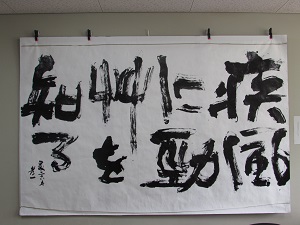 疾風
に勁
艸を
知る